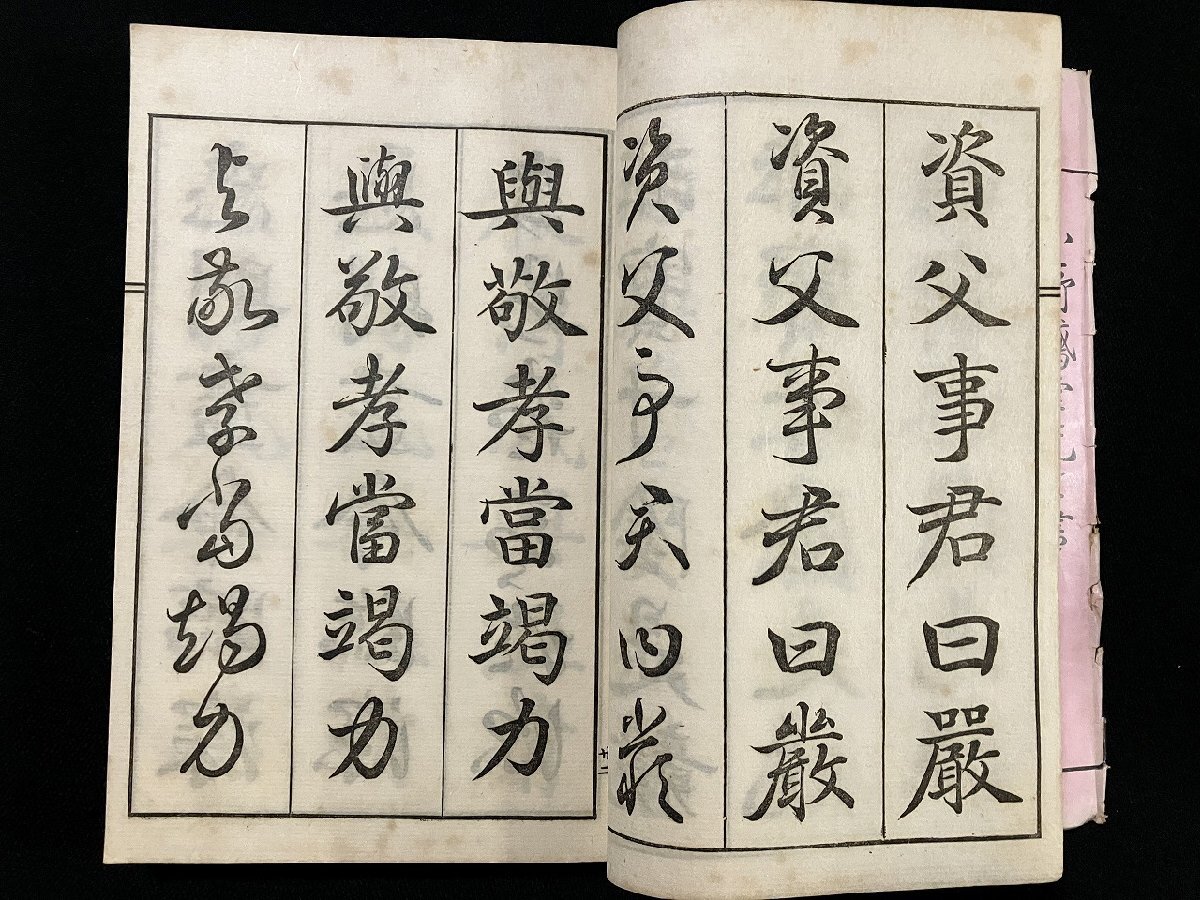 資父事君曰嚴
資父事君曰巖
資父事君曰嚴
與敬孝當竭力
與敬孝當竭力
与敬孝當竭力
十一